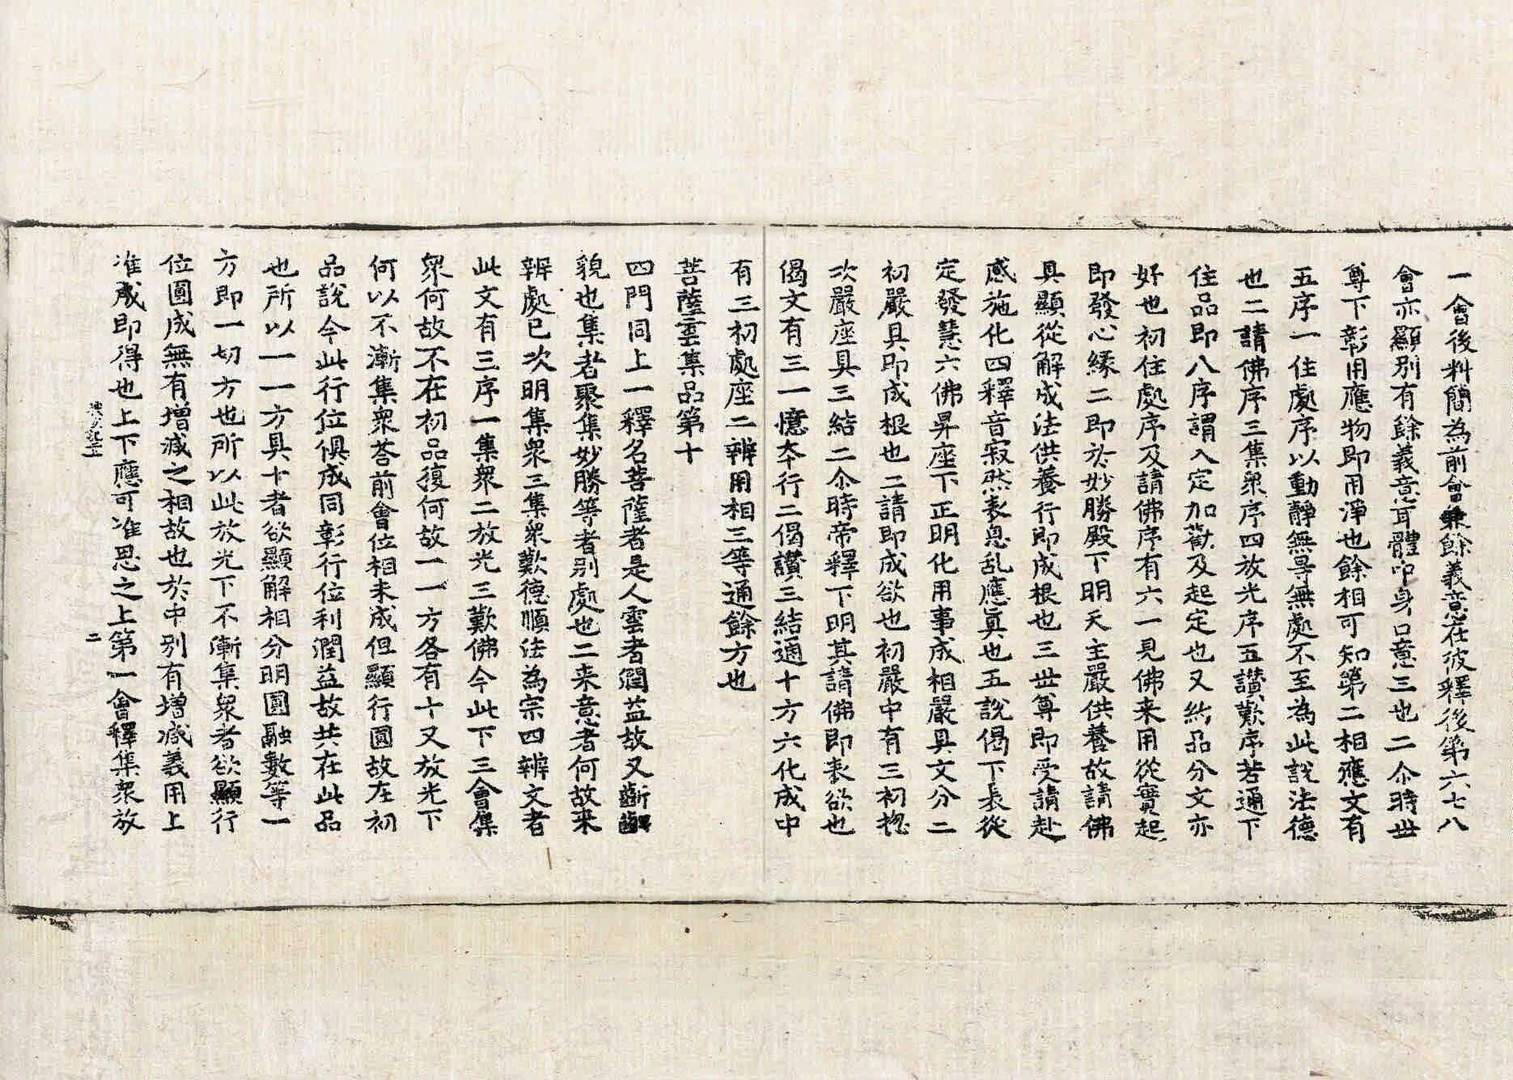 一會後料簡為前會兼餘義意在彼釋後第六七八
會亦顯別有餘義意耳體即身口意三也二尒時世
尊下彰用應物即用淨也餘相可知第二相應文有
五序一住處序以動靜無㝵無處不至為此說法德
也二請佛序三集衆序四放光序五讃歎序若通下
住品即八序謂入定加勸及起定也又約品分文亦
好也初住處序及請佛序有六一見佛来用從實起
即發心縁二即於妙勝殿下明天主嚴供養故請佛
具顯從解成法供養行即成根也三世尊即受請赴
感施化四釋音寂然表息乱應真也五說偈下表從
定發慧六佛昇座下正明化用事成相嚴具文分二
初嚴具即成根也二請即成欲也初嚴中有三初揔
次嚴座具三結二尒時帝釋下明其請佛即表欲也
偈文有三一憶本行二偈讃三結通十方六化成中
有三初處座二辨用相三等通餘方也
菩薩雲集品第十
四門同上一釋名菩薩者是人雲者潤益故又斷
貌也集者聚集妙勝等者別處也二来意者何故来
辨處已次明集衆三集衆歎德順法為宗四辨文者
此文有三序一集衆二放光三歎佛今此下三會集
衆何故不在初品復何故一一方各有十又放光下
何以不漸集衆荅前會位相未成但顯行圓故在初
品說今此行位俱成同彰行位利潤益故共在此品
也所以一一方具十者欲顯解相分明圓融數等一
方即一切方也所以此放光下不漸集衆者欲顯行
位圓成無有增減之相故也於中別有增減義用上
准成即得也上下應可准思之上第一會釋集衆放
二